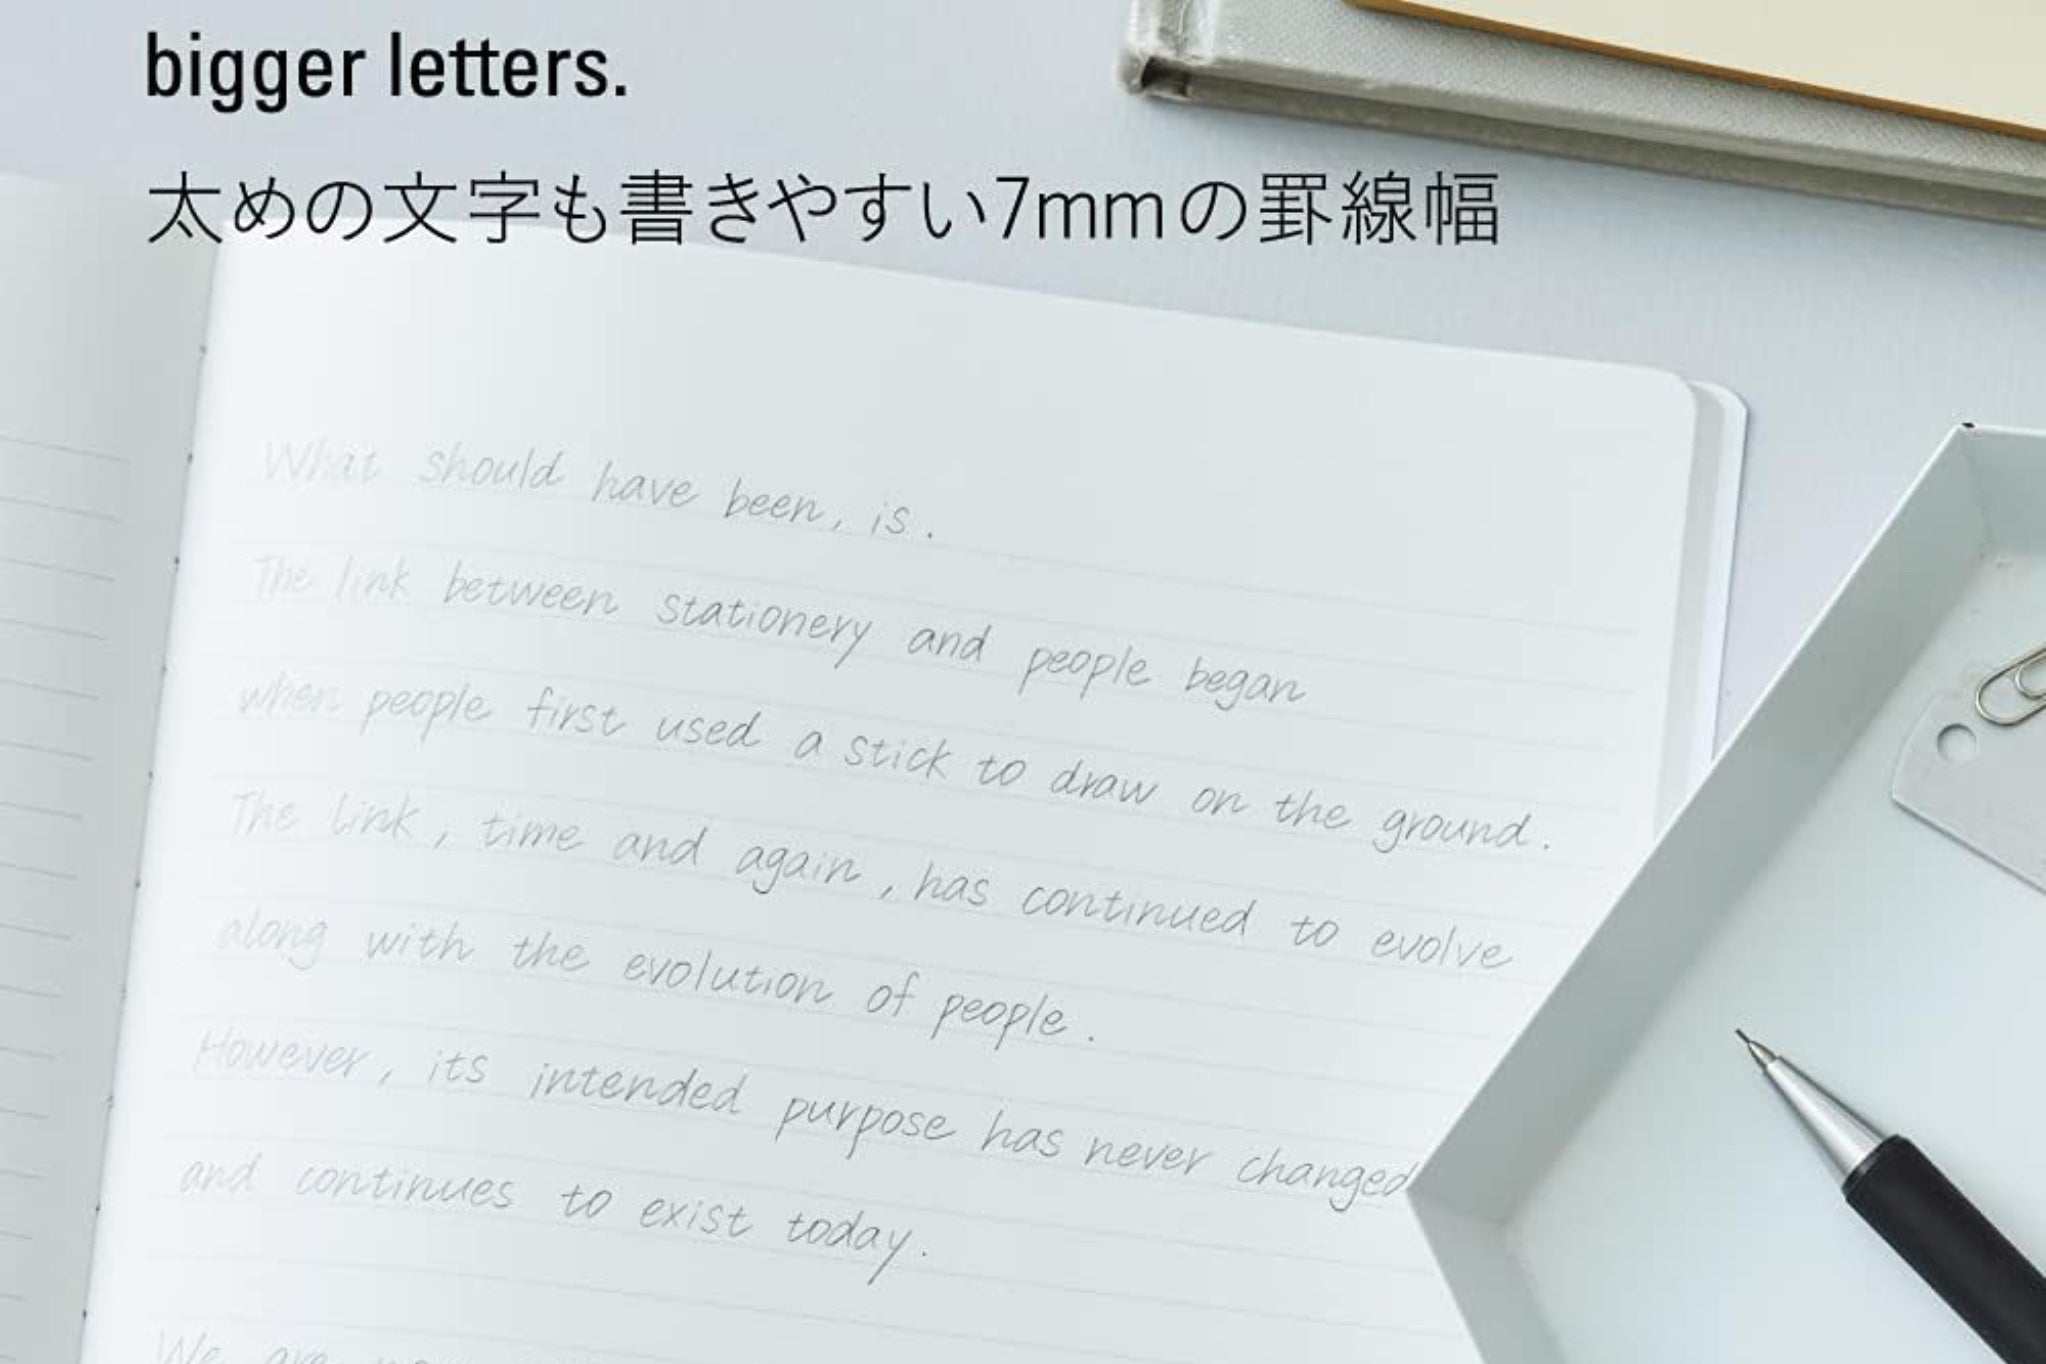 bigger letters.
太めの文字も書きやすい7mmの罫線幅
What should have been, is.
The link between stationery and people began
when people first used a stick to draw on the ground.
The link, time and again, has continued to evolve
along with the evolution of people.
However, its intended purpose has never changed
and continues to exist today.
We are